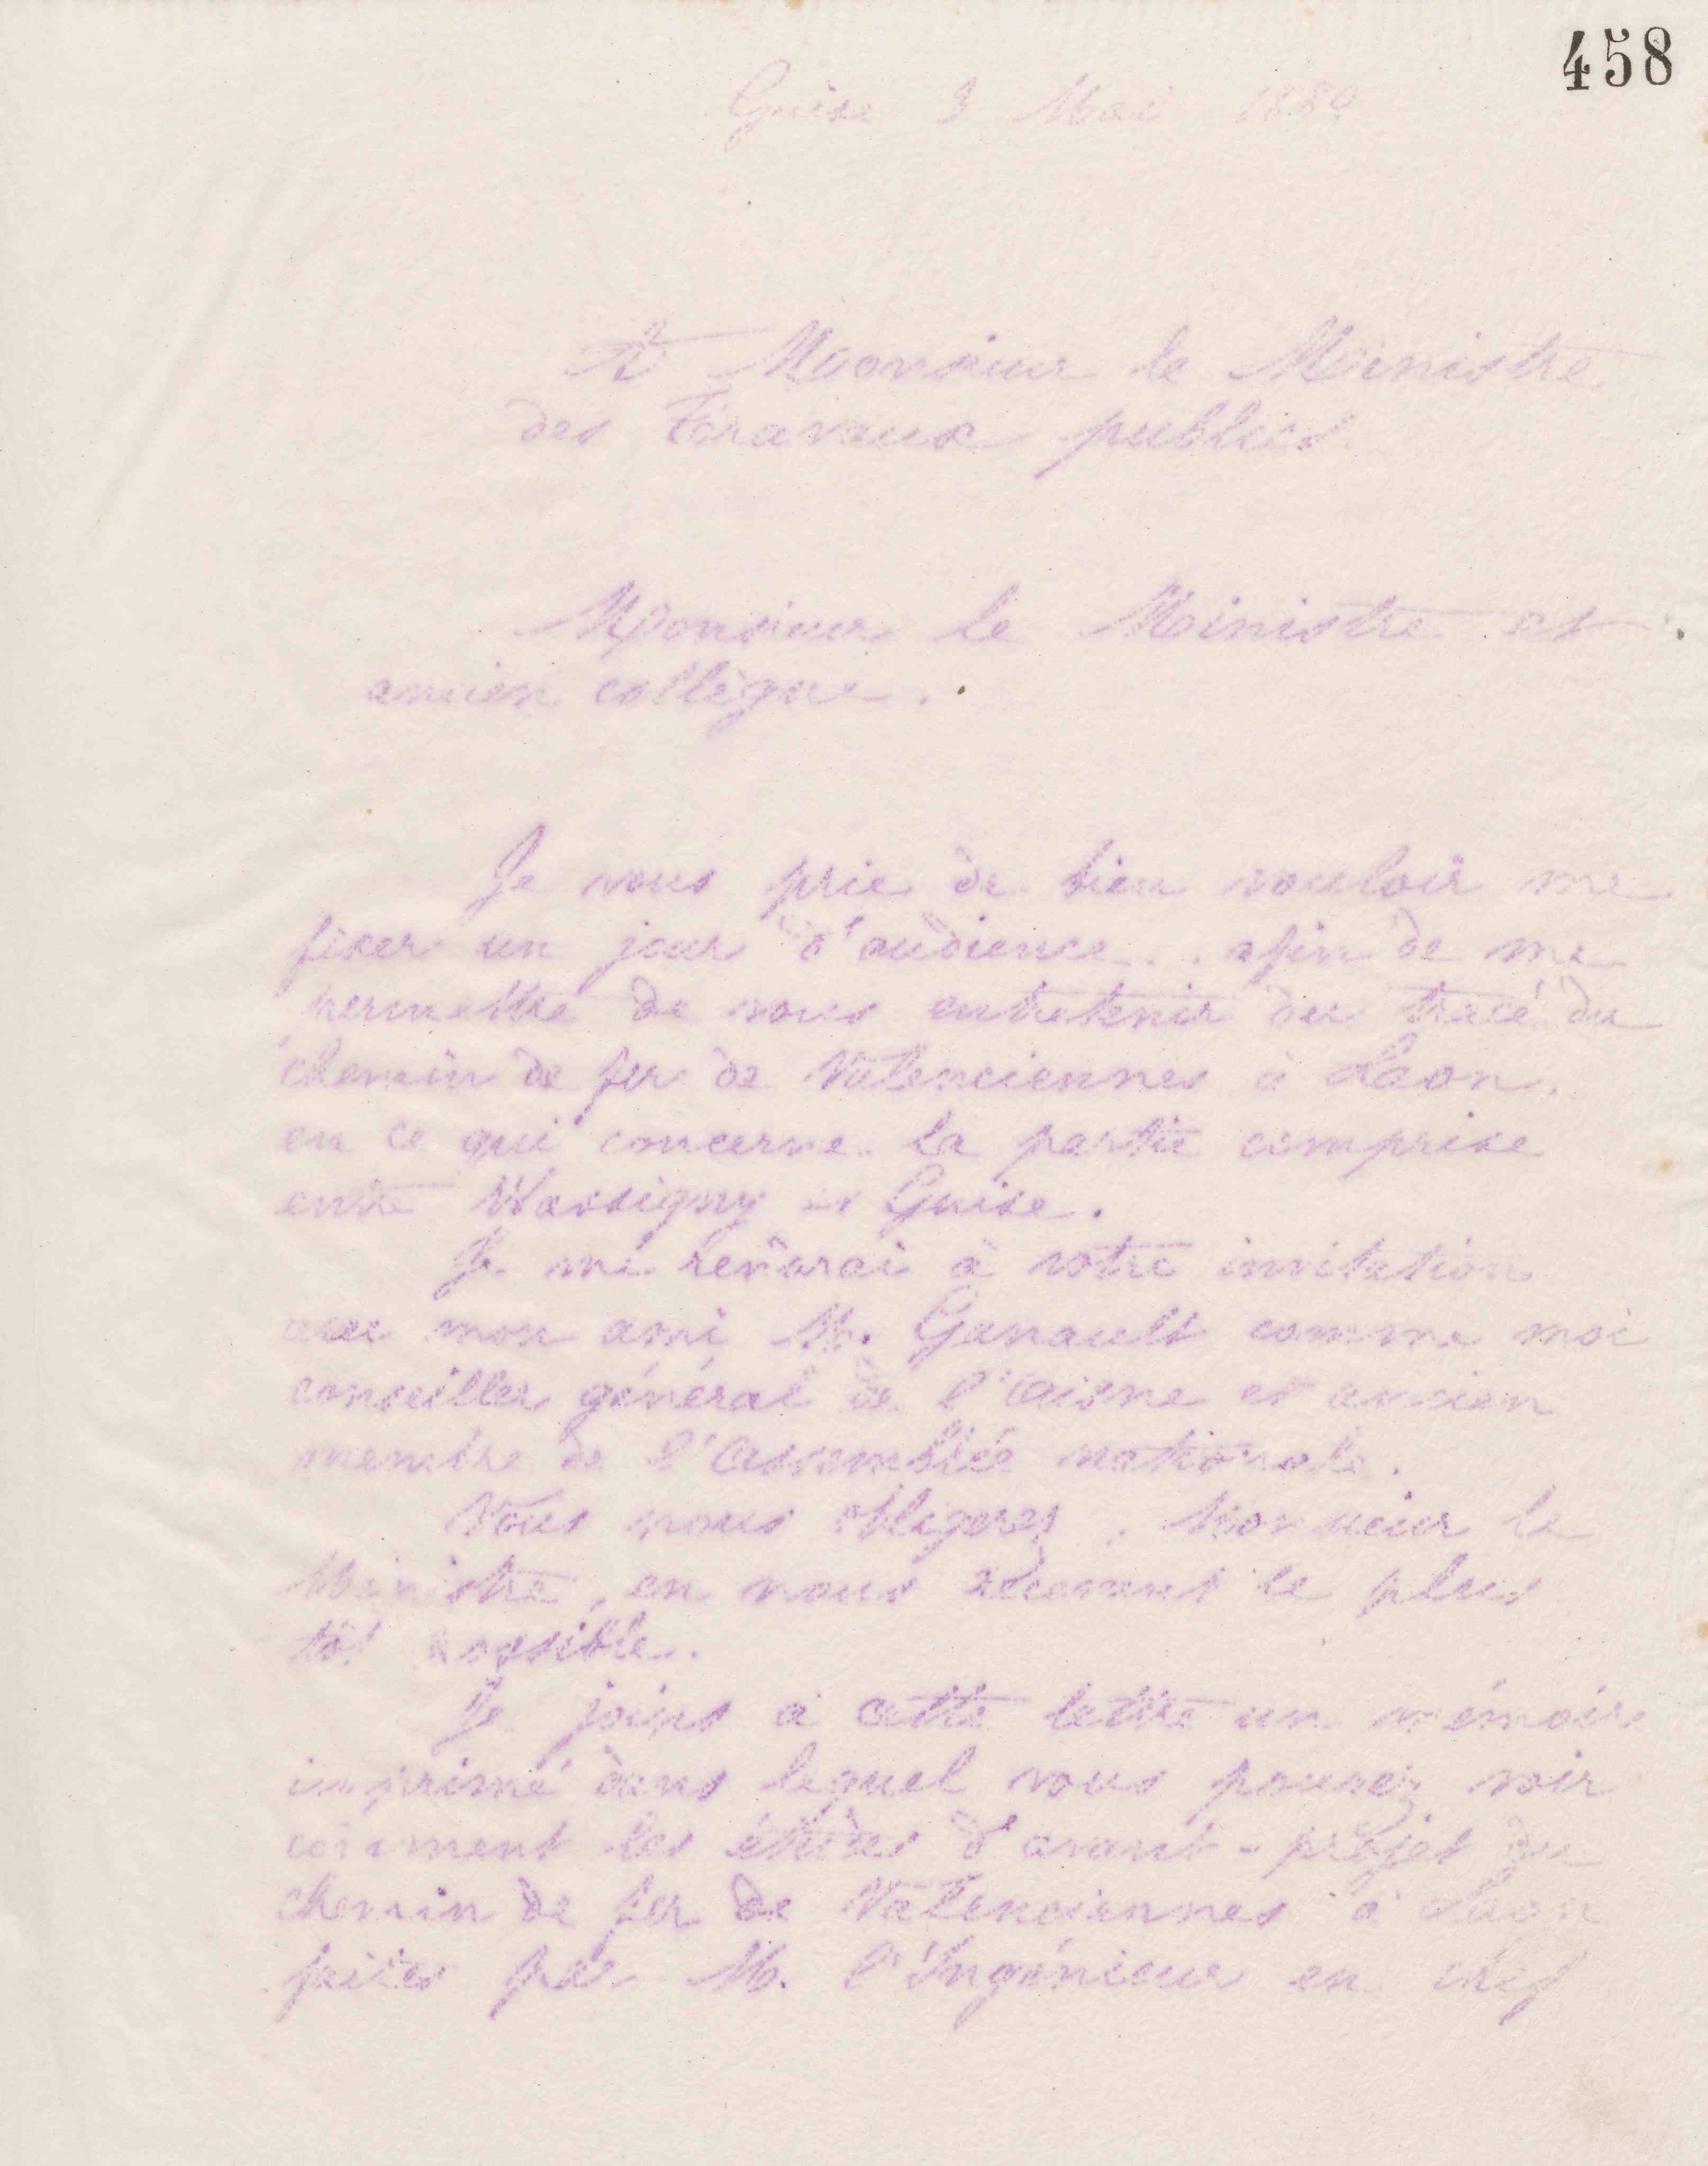 458
Guise 3 Mai 1880
A Monsieur le Ministre
des Travaux publics
Monsieur le Ministre et
ancien collègue.
Je vous prie de bien vouloir me
fixer un jour d'audience.. afin de me
permettre de vous entretenir du tracé du
chemin de fer de Valenciennes à Laon.
en ce qui concerne la partie comprise
entre Wassigny et Guise.
Je me rendrai à votre invitation
avec mon ami M. Ganault comme moi
conseiller général de l'Aisne et ancien
membre de l'Assemblée nationale.
Vous nous obligerez, Monsieur le
Ministre, en nous recevant le plus
tôt possible.
Je joins à cette lettre un mémoire
imprimé dans lequel vous pourrez voir
comment les études d'avant-projet du
chemin de fer de Valenciennes à Laon
faites par M. l'Ingénieur en chef